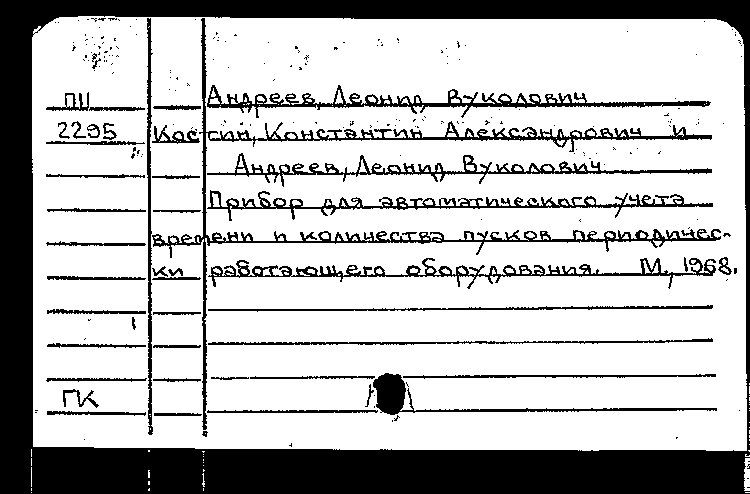 Андреев, Леонид Вуколович
П11
2295 Костин, Константин Александрович и
Андреев, Леонид Вуколович
Прибор для автоматического учета
времени и количества пусков периодичес-
ки работающего оборудования. М., 1968.
ГК